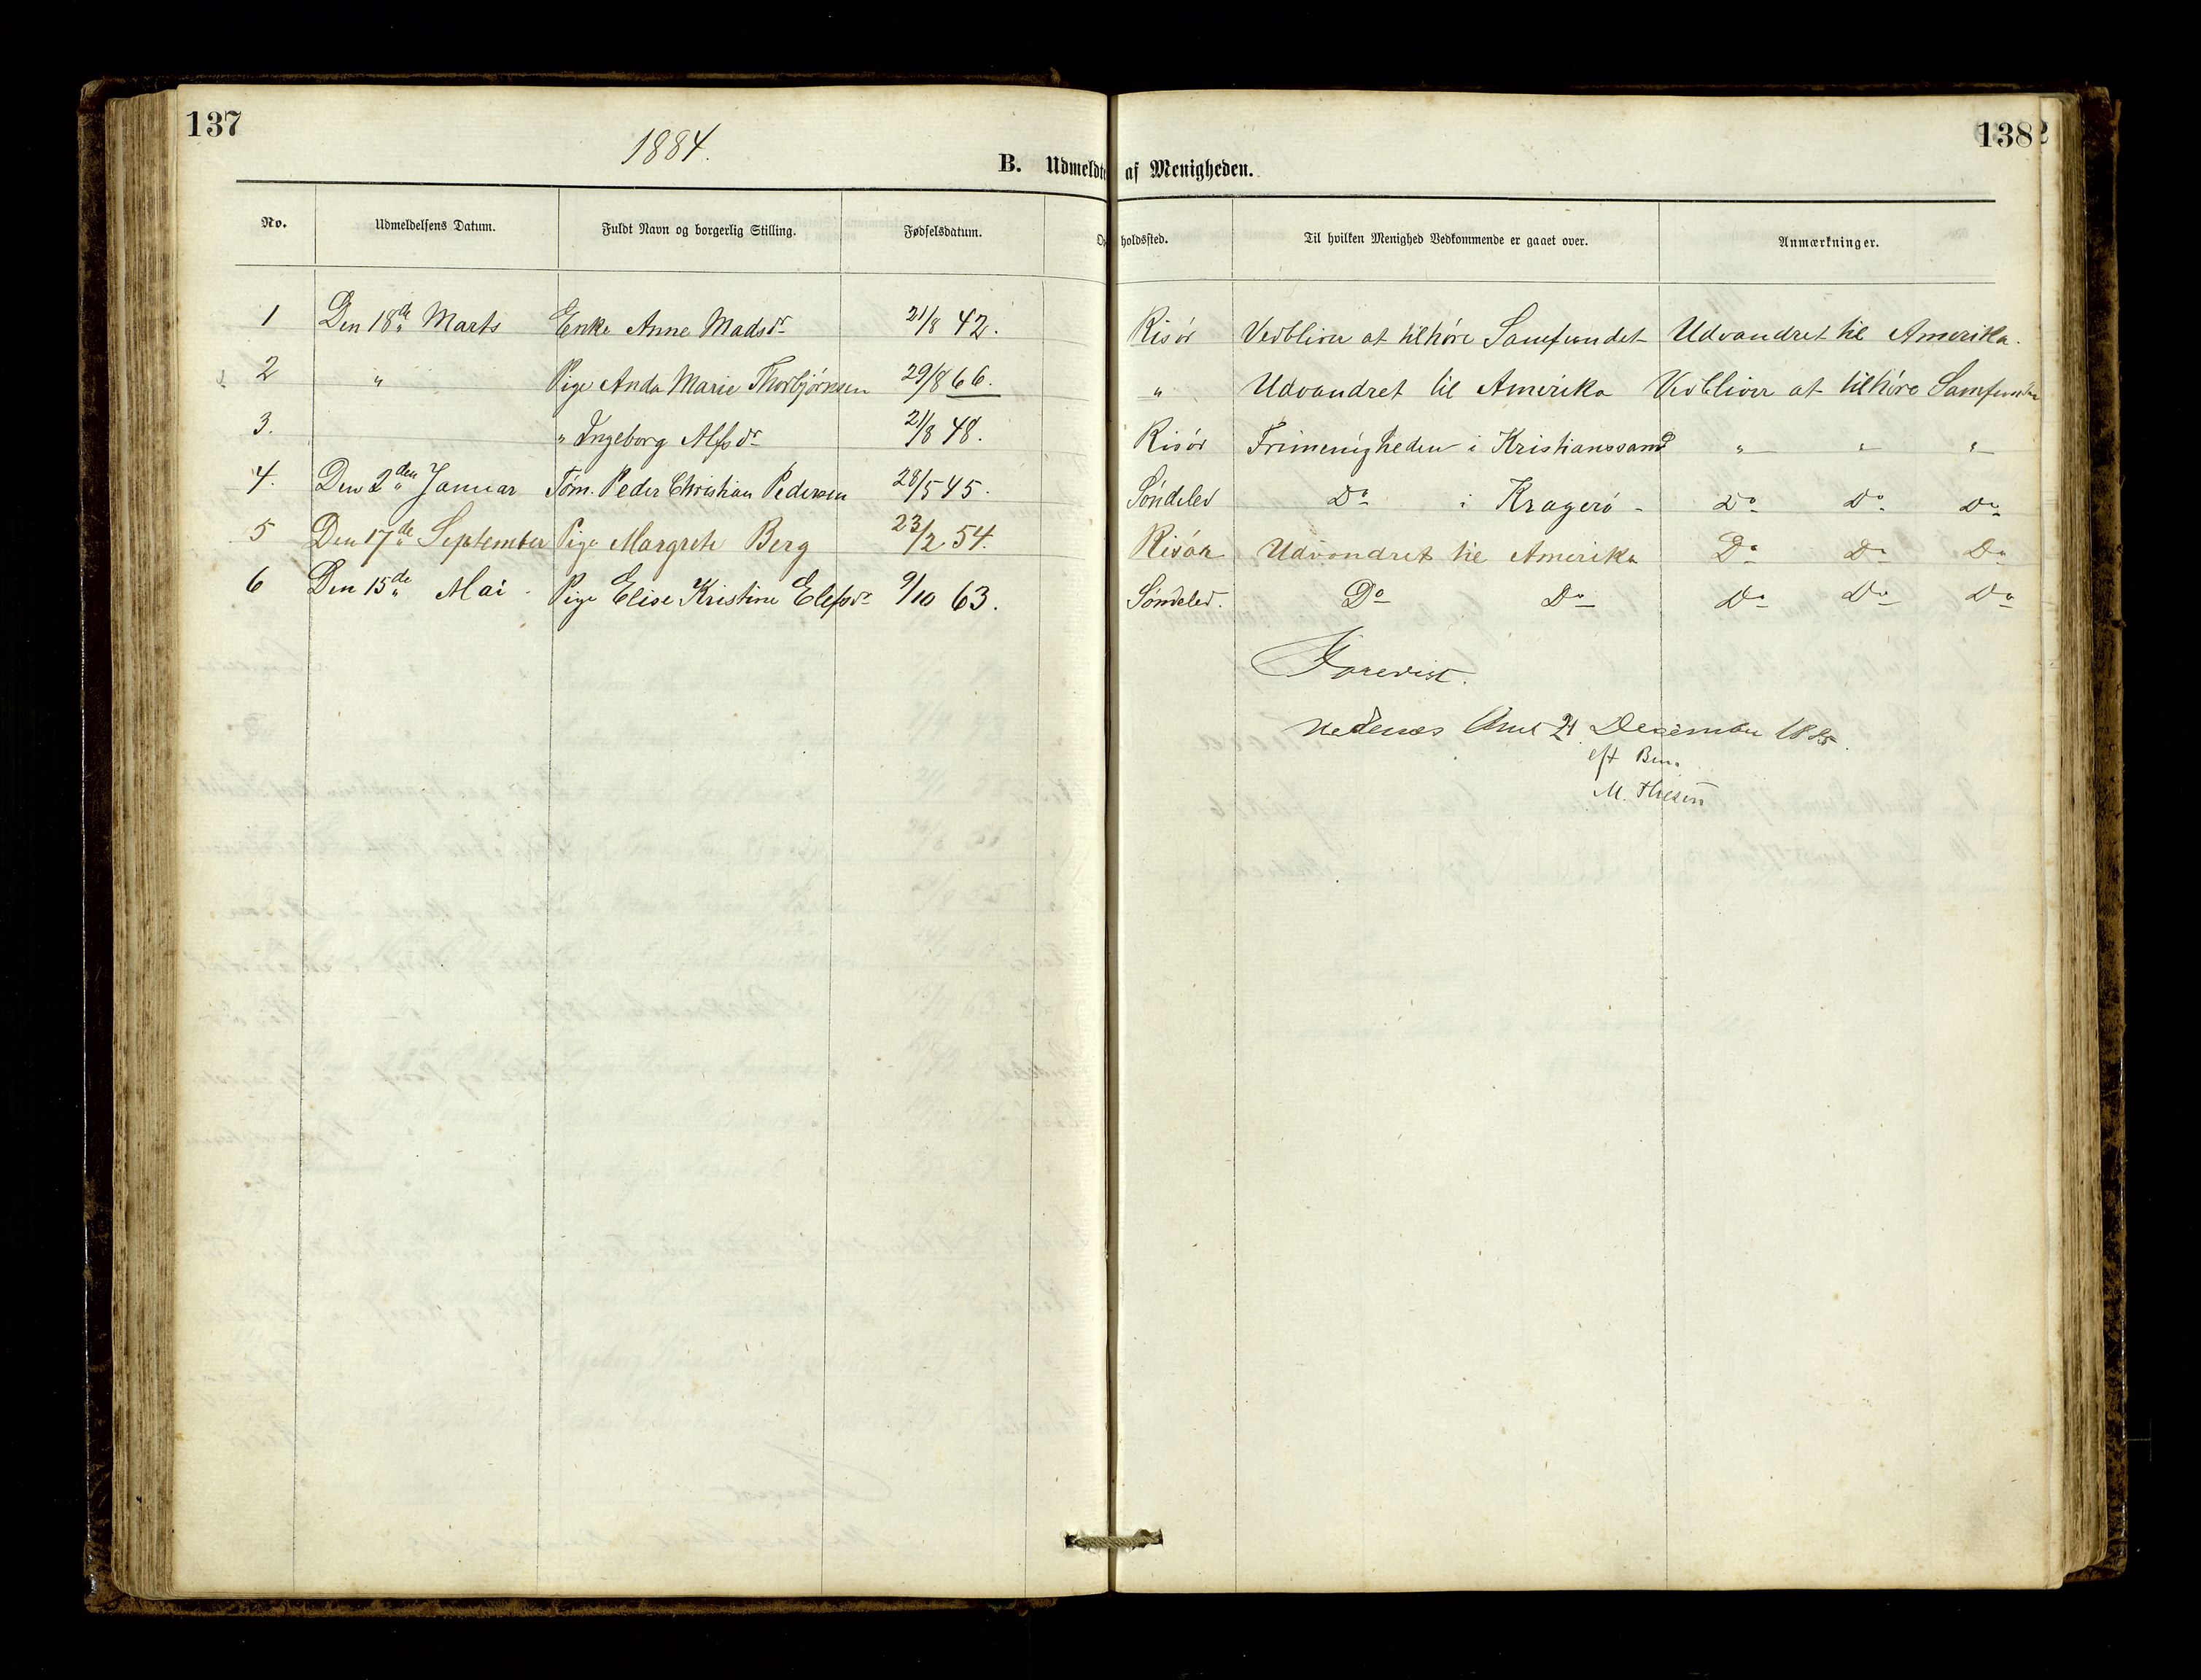 137
138
1884.
B. Udmeldte af Menigheden.
No. Udmeldelsens Datum. Fuldt Navn og borgerlig Stilling. Fødselsdatum. Opholdssted. Til hvilken Menighed Vedkommende er gaaet over. Anmærkninger.
1 Den 18de Marts Enke Anne Madsdr 21/8 42. Risör Verbliver at tilhøre Samfundet Udvandret til Amerika.
2 " Pige Anda Marie Thorbjörnsen 29/8 66. " Udvandret til Amerika Verbliver at tilhøre Samfundet
3. " Ingeborg Alfsdr 21/8 48. Risör Frimenigheden i Kristianssand " " "
4. Den 2den Januar Töm. Peder Christian Pedersen 28/5 45. Söndeled Do i Kragerö - Do Do Do
5 Den 17de September Pige Margrete Berg 23/2 54. Risör Udvandret til Amerika Do Do Do
6 Den 15de Mai Pige Elise Kristine Elefsdr 9/10 63. Söndeled. Do Do Do Do Do
Forevist.
Nedenæs Amt 21 December 1885.
eft Bem.
M. Thesen